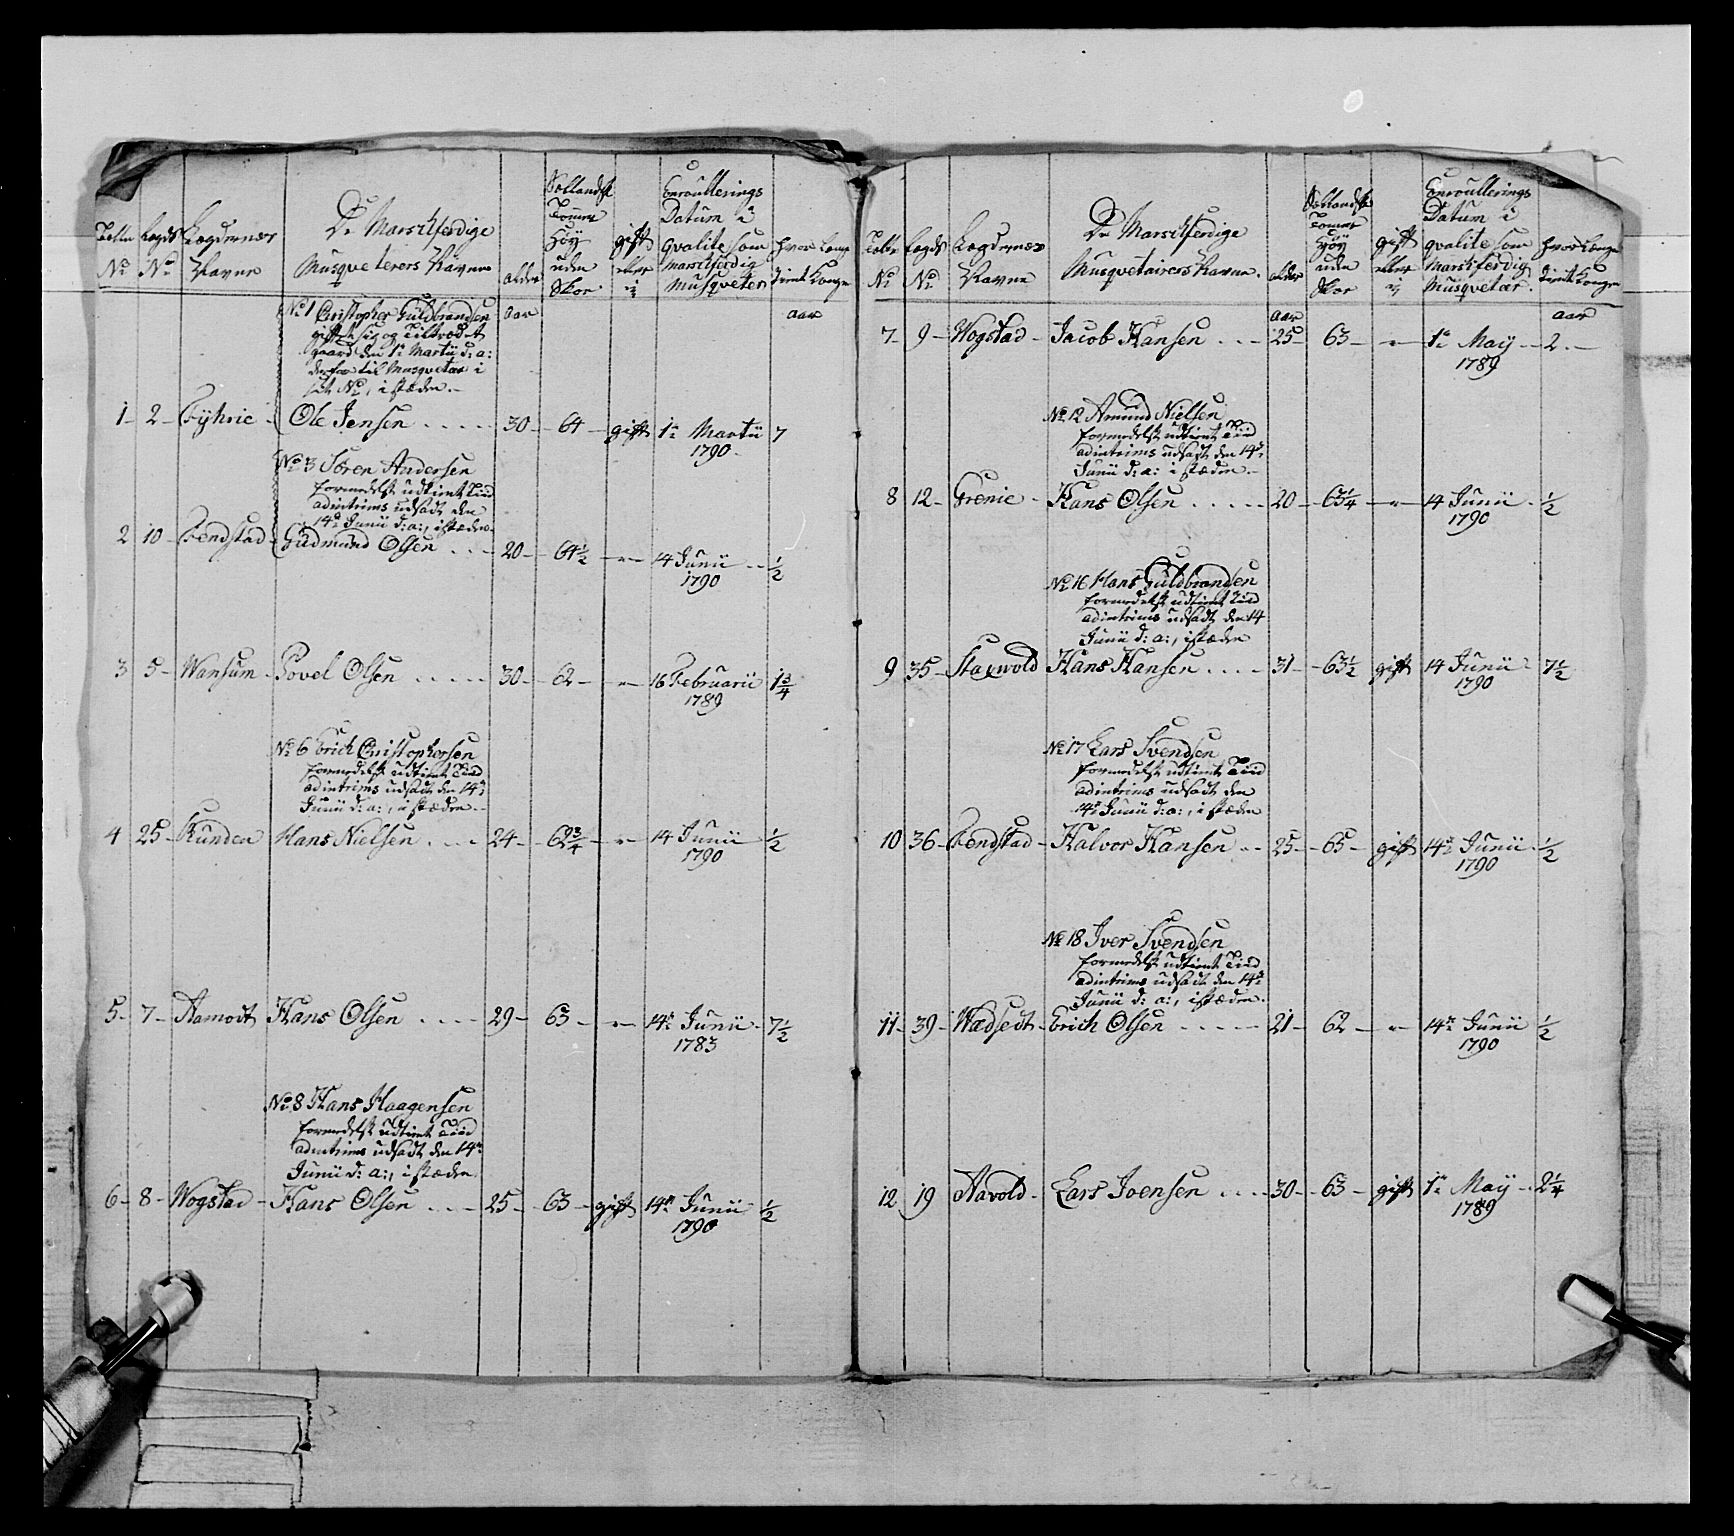 Lægds
No
No
Lægdernes
Navne
De Marschferdige
Musqueterers Navne
alder
Hollandsk
Tommer
Høy
uden
Skoe
gift
eller
ei
Enroullerings
Datum i
qvalite som
Marschferdig
Musqueter
hvor længe
tient Konge
aar
aar
No 1 Christopher Guldbrandsen
gift sig og Tiltrædet
gaard den 1te Martii d: a:
derfor til Musquetair i
i stæden
1 2 Ole Jensen 30 64 gift 1te Martii 7
1790
No 3 Søren Andersen
formedelst udtient Tiid
ad intrims udsadt den
14de Junii d: a:, i stæden
2 10 Fendstad Gudmund Olsen 20 64 1/2 14 Junii 1/2
1790
3 5 Wansum Povel Olsen 30 62 16 Februarii 1 3/4
1789
No 6 Erich Christophersen
formedelst udtient Tiid
ad intrims udsadt den 14de
Junii d: a:, i stæden
4 25 Hans Nielsen 24 62 3/4 14 Junii 1/2
1790
5 7 Aamodt Hans Olsen 29 63 14de Junii 7 1/2
1783
No 8 Hans Haagensen
formedelst udtient Tiid
ad intrims udsadt den 14de
Junii d: a:, i stæden
6 8 Wogstad Hans Olsen 25 63 gift 14de Junii 1/2
1790
Lægds
No
No
Lægdernes
Navne
De Marschferdige
Musquetairers Navne
alder
Hollandsk
Tommer
Høy
uden
Skoe
gift
eller
ei
Enroullerings
Datum i
qvalite som
Marschferdig
Musquetær
hvor Længe
tient Konge
aar
aar
7 9 Wogstad Jacob Hansen 25 63 1te Maÿ 2
1789
No 12 Amund Nielsen
formedelst udtient Tiid
ad intrims udsadt den 14de
Junii d: a: i stæden
8 12 Grenie Hans Olsen 20 63 1/4 14 Junii 1/2
1790
No 16 Hans Guldbrandsen
formedelst udtient Tiid
ad intrims udsadt den 14
Junii d: a:, i stæden
9 35 Hans Hansen 31 63 1/2 gift 14 Junii 7 1/2
1790
No 17 Lars Svendsen
formedelst udtient Tiid
ad intrims udsadt den
14de Junii d: a:, i stæden
10 36 Fendstad Halvor Hansen 25 65 gift 14de Junii 1/2
1790
No 18 Iver Svendsen
formedelst udtient Tiid
ad intrims udsadt den 14de
Junii d: a:, i stæden
11 39 Wædsedt Erich Olsen 21 62 14de Junii 1/2
1790
12 19 Aavold Lars Joensen 30 63 gift 1te Maÿ 2 1/4
1789